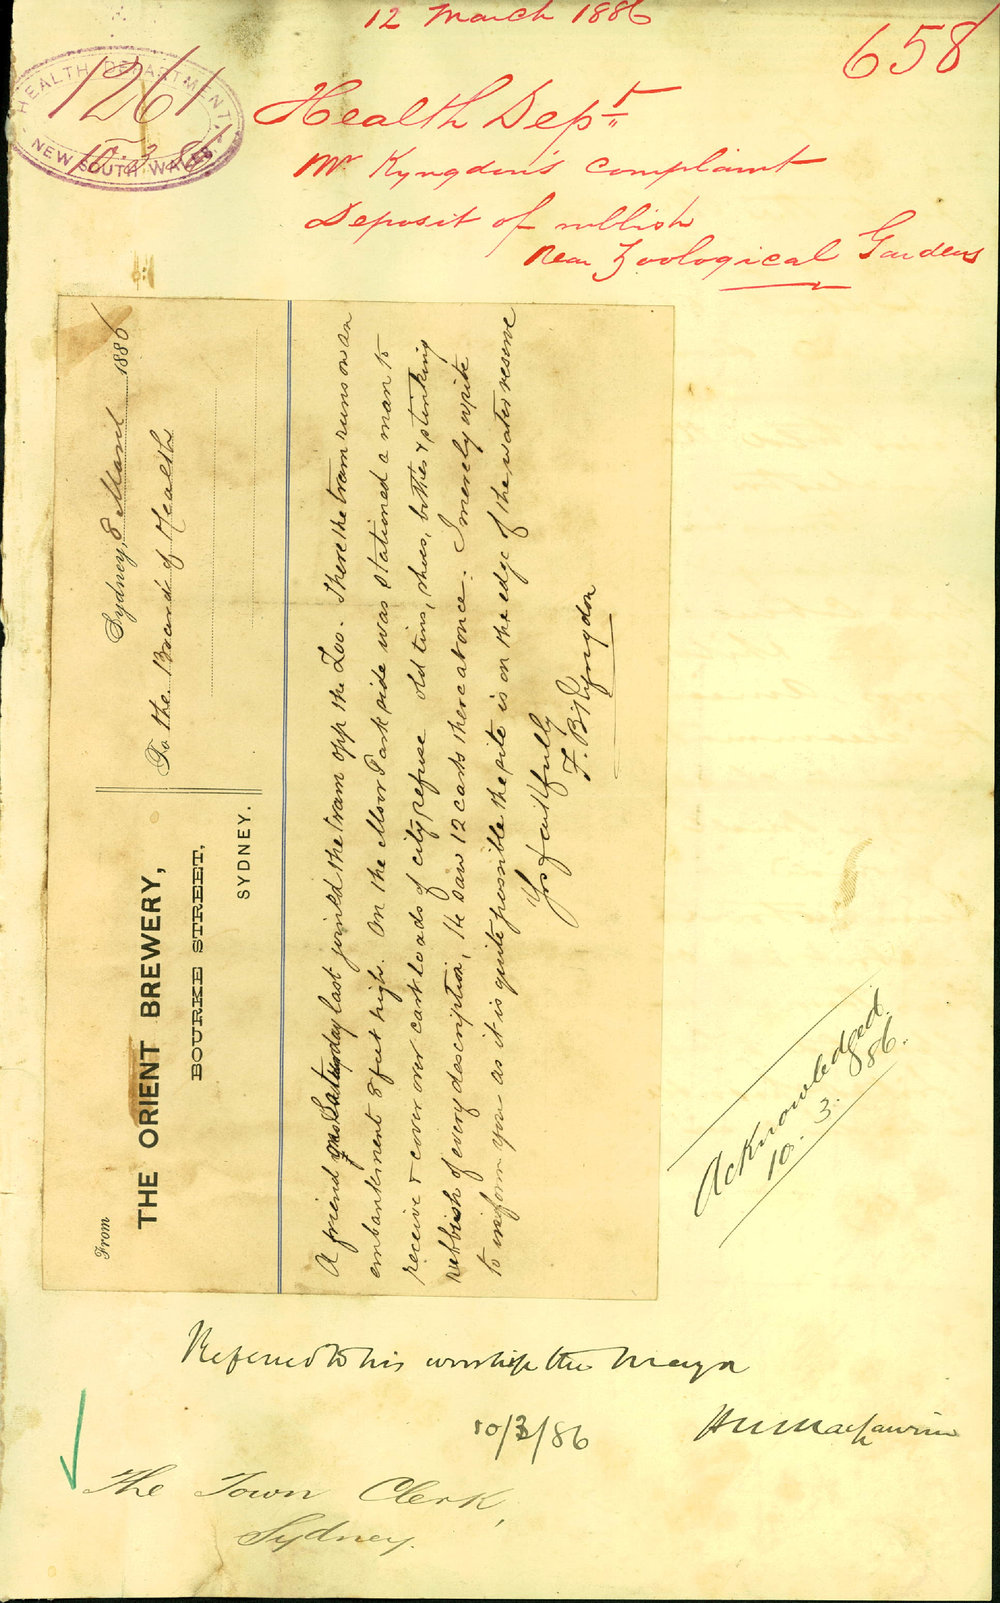 12 March 1886
658
HEALTH DEPARTMENT
1261
10.3.86
NEW SOUTH WALES
Health Dept
Mr Kyngdon's complaint
Deposit of rubbish
near Zoological Gardens
From
THE ORIENT BREWERY,
BOURKE STREET,
SYDNEY.
Sydney, 8 March 1886
To the Board of Health
A friend Saturday last joined the tram opp the Zoo. There the tram runs on an
embankment 8 feet high. On the Moor Park side was stationed a man to
receive & cover over cart loads of city refuse old tins, shoes, bottles & stinking
rubbish of every description, He saw 12 carts there at once. I merely write
to inform you as it is quite possible the site is on the edge of the water reserve
Yrs faithfully
F. B. Kyngdon
Acknowledged.
10. 3. 86.
Referred to his worship the Mayor
10/3/86
The Town Clerk,
Sydney.